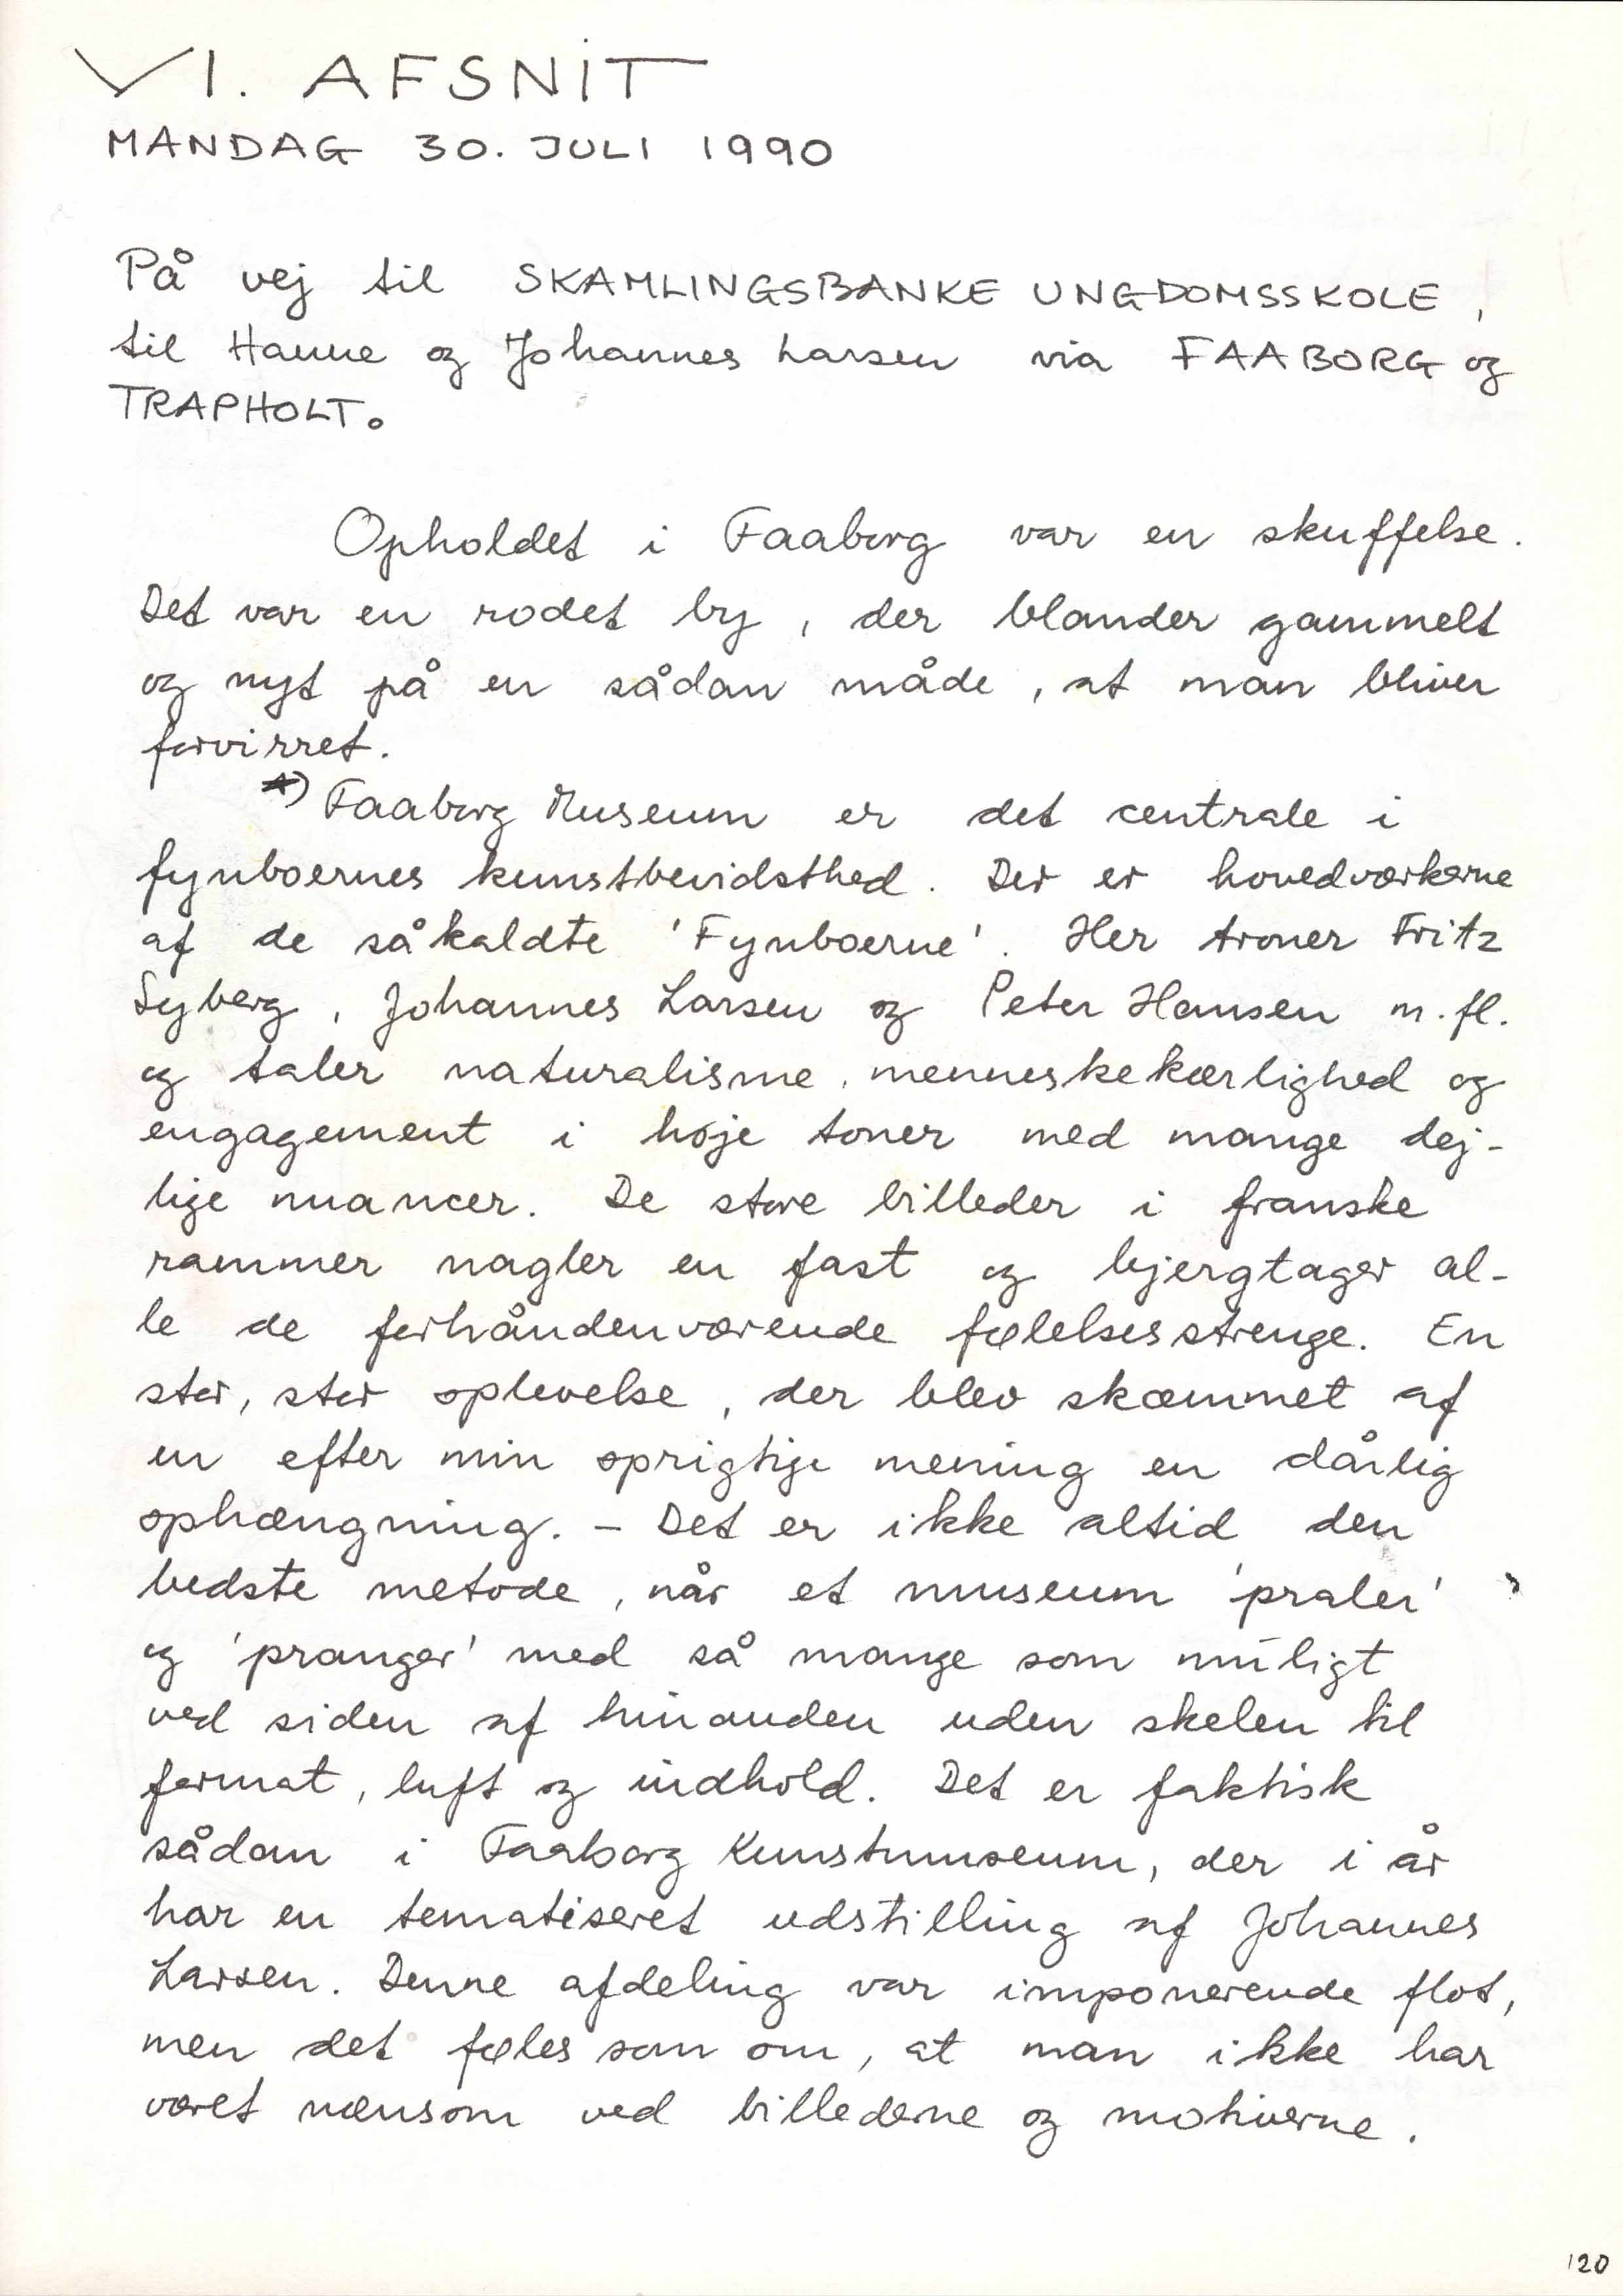 VI. AFSNIT
MANDAG 30. JULI 1990
På vej til SKAMLINGSBANKE UNGDOMSSKOLE,
til Hanne og Johannes Larsen via FAABORG og
TRAPHOLT.
Opholdet i Faaborg var en skuffelse.
Det var en rodet by, der blander gammelt
og nyt på en sådan måde, at man bliver
forvirret.
*) Faaborg Museum er det centrale i
fynboernes kunstbevidsthed. Der er hovedværkerne
af de såkaldte 'Fynboerne'. Her troner Fritz
Syberg, Johannes Larsen og Peter Hansen m.fl.
og taler naturalisme, menneskekærlighed og
engagement i høje toner med mange dej-
lige nuancer. De store billeder i franske
rammer nagler en fast og bjergtager al-
le de forhåndenværende følelsesstrenge. En
stor, stor oplevelse, der blev skæmmet af
en efter min oprigtige mening en dårlig
ophængning. - Det er ikke altid den
bedste metode, når et museum 'praler'
og 'pranger' med så mange som muligt
ved siden af hinanden uden skelen til
format, luft og indhold. Det er faktisk
sådan i Faaborg Kunstmuseum, der i år
har en tematiseret udstilling af Johannes
Larsen. Denne afdeling var imponerende flot,
men det føles som om, at man ikke har
været nænsom ved billederne og motiverne.
120